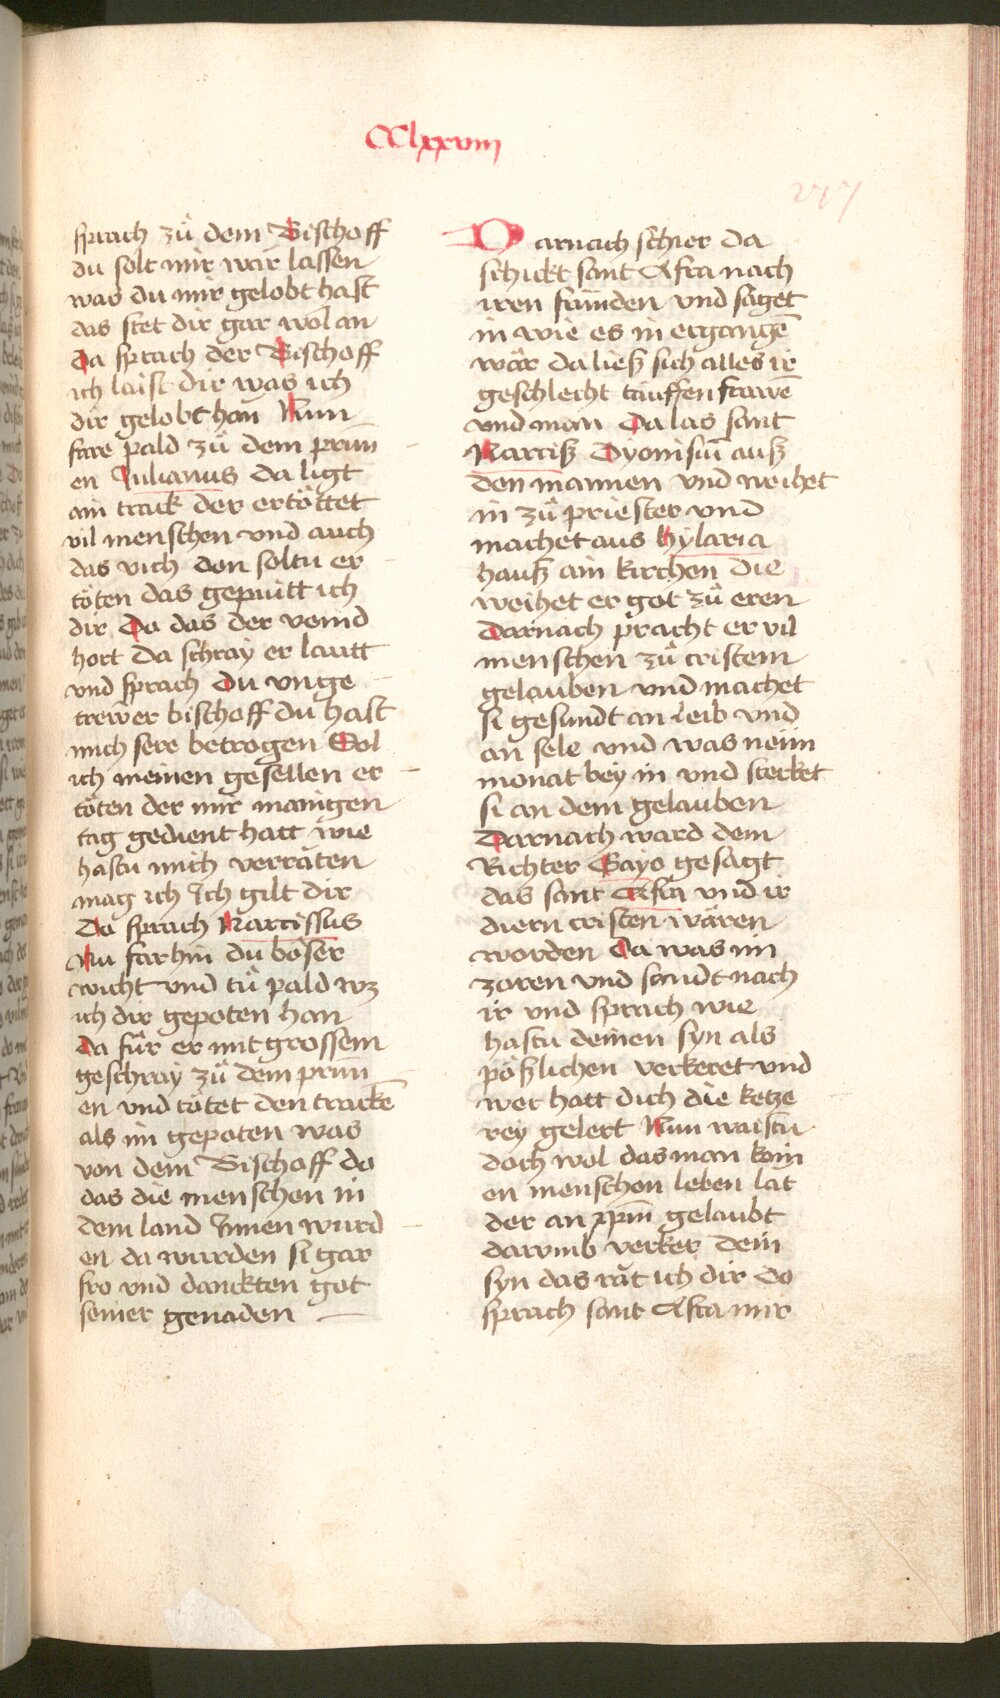 CClxxviii
277
sprach zů dem Bischoff
du solt mir war lassen
was du mir gelobt hast
das stet dir gar wol an
Da sprach der Bischoff
ich laist dir was ich
dir gelobt han Nun
fare pald zů dem prun¬
en Julianus da ligt
ain track der ertöttet
vil menschen vnd auch
das vich den soltu er¬
töten das gepuitt ich
dir Da das der veind
hort da schray er lautt
vnd sprach Du vnge¬
trewer bischoff du hast
mich sere betrogen Sol
ich meinen gesellen er¬
töten der mir manigen
tag gedient hatt wie
hastu mich verraten
mag ich Jch gilt dir
Da sprach Narcissus
Nu far hin du böser
wicht vnd tů pald wz
ich dir gepoten han
da fůr er mit grossem
geschray zů dem prun¬
en vnd tötet den tracken̄
als im gepoten was
von dem Bischoff do
das die menschen in
dem land Jnnen wurd¬
en da wurden si gar
fro vnd danckten got
seiner genaden
Darnach schier da
schickt sant Afra nach
iren frúnden vnd saget
in wie es in ergangē
wär da ließ sich alles ir
geschlecht tauffen frawē
vnd man Da las sant
Narciß Dyonisiū auß
den mannen vnd weihet
in zů priester vnd
machet aus hylaria
hauß ain kirchen die
weihet er got zů eren
Darnach pracht er vil
menschen zů cristem
gelauben vnd machet
si gesundt an leib vnd
an sele vnd was neun
monat bey in vnd sterket
si an dem gelauben
Darnach ward dem
Richter Gayo gesagt
das sant Afra vnd ir
diern cristen wären
worden Da was im
zoren vnd sandt nach
ir vnd sprach wie
hastu deinen syn als
pößlichen verkeret vnd
wer hatt dich die ketze¬
rey gelert Nun waistu
doch wol das man kain¬
en menschen leben lat
der an xp̄m gelaubt
darumb verker dein
syn das rät ich dir Do
sprach sant Afra mir